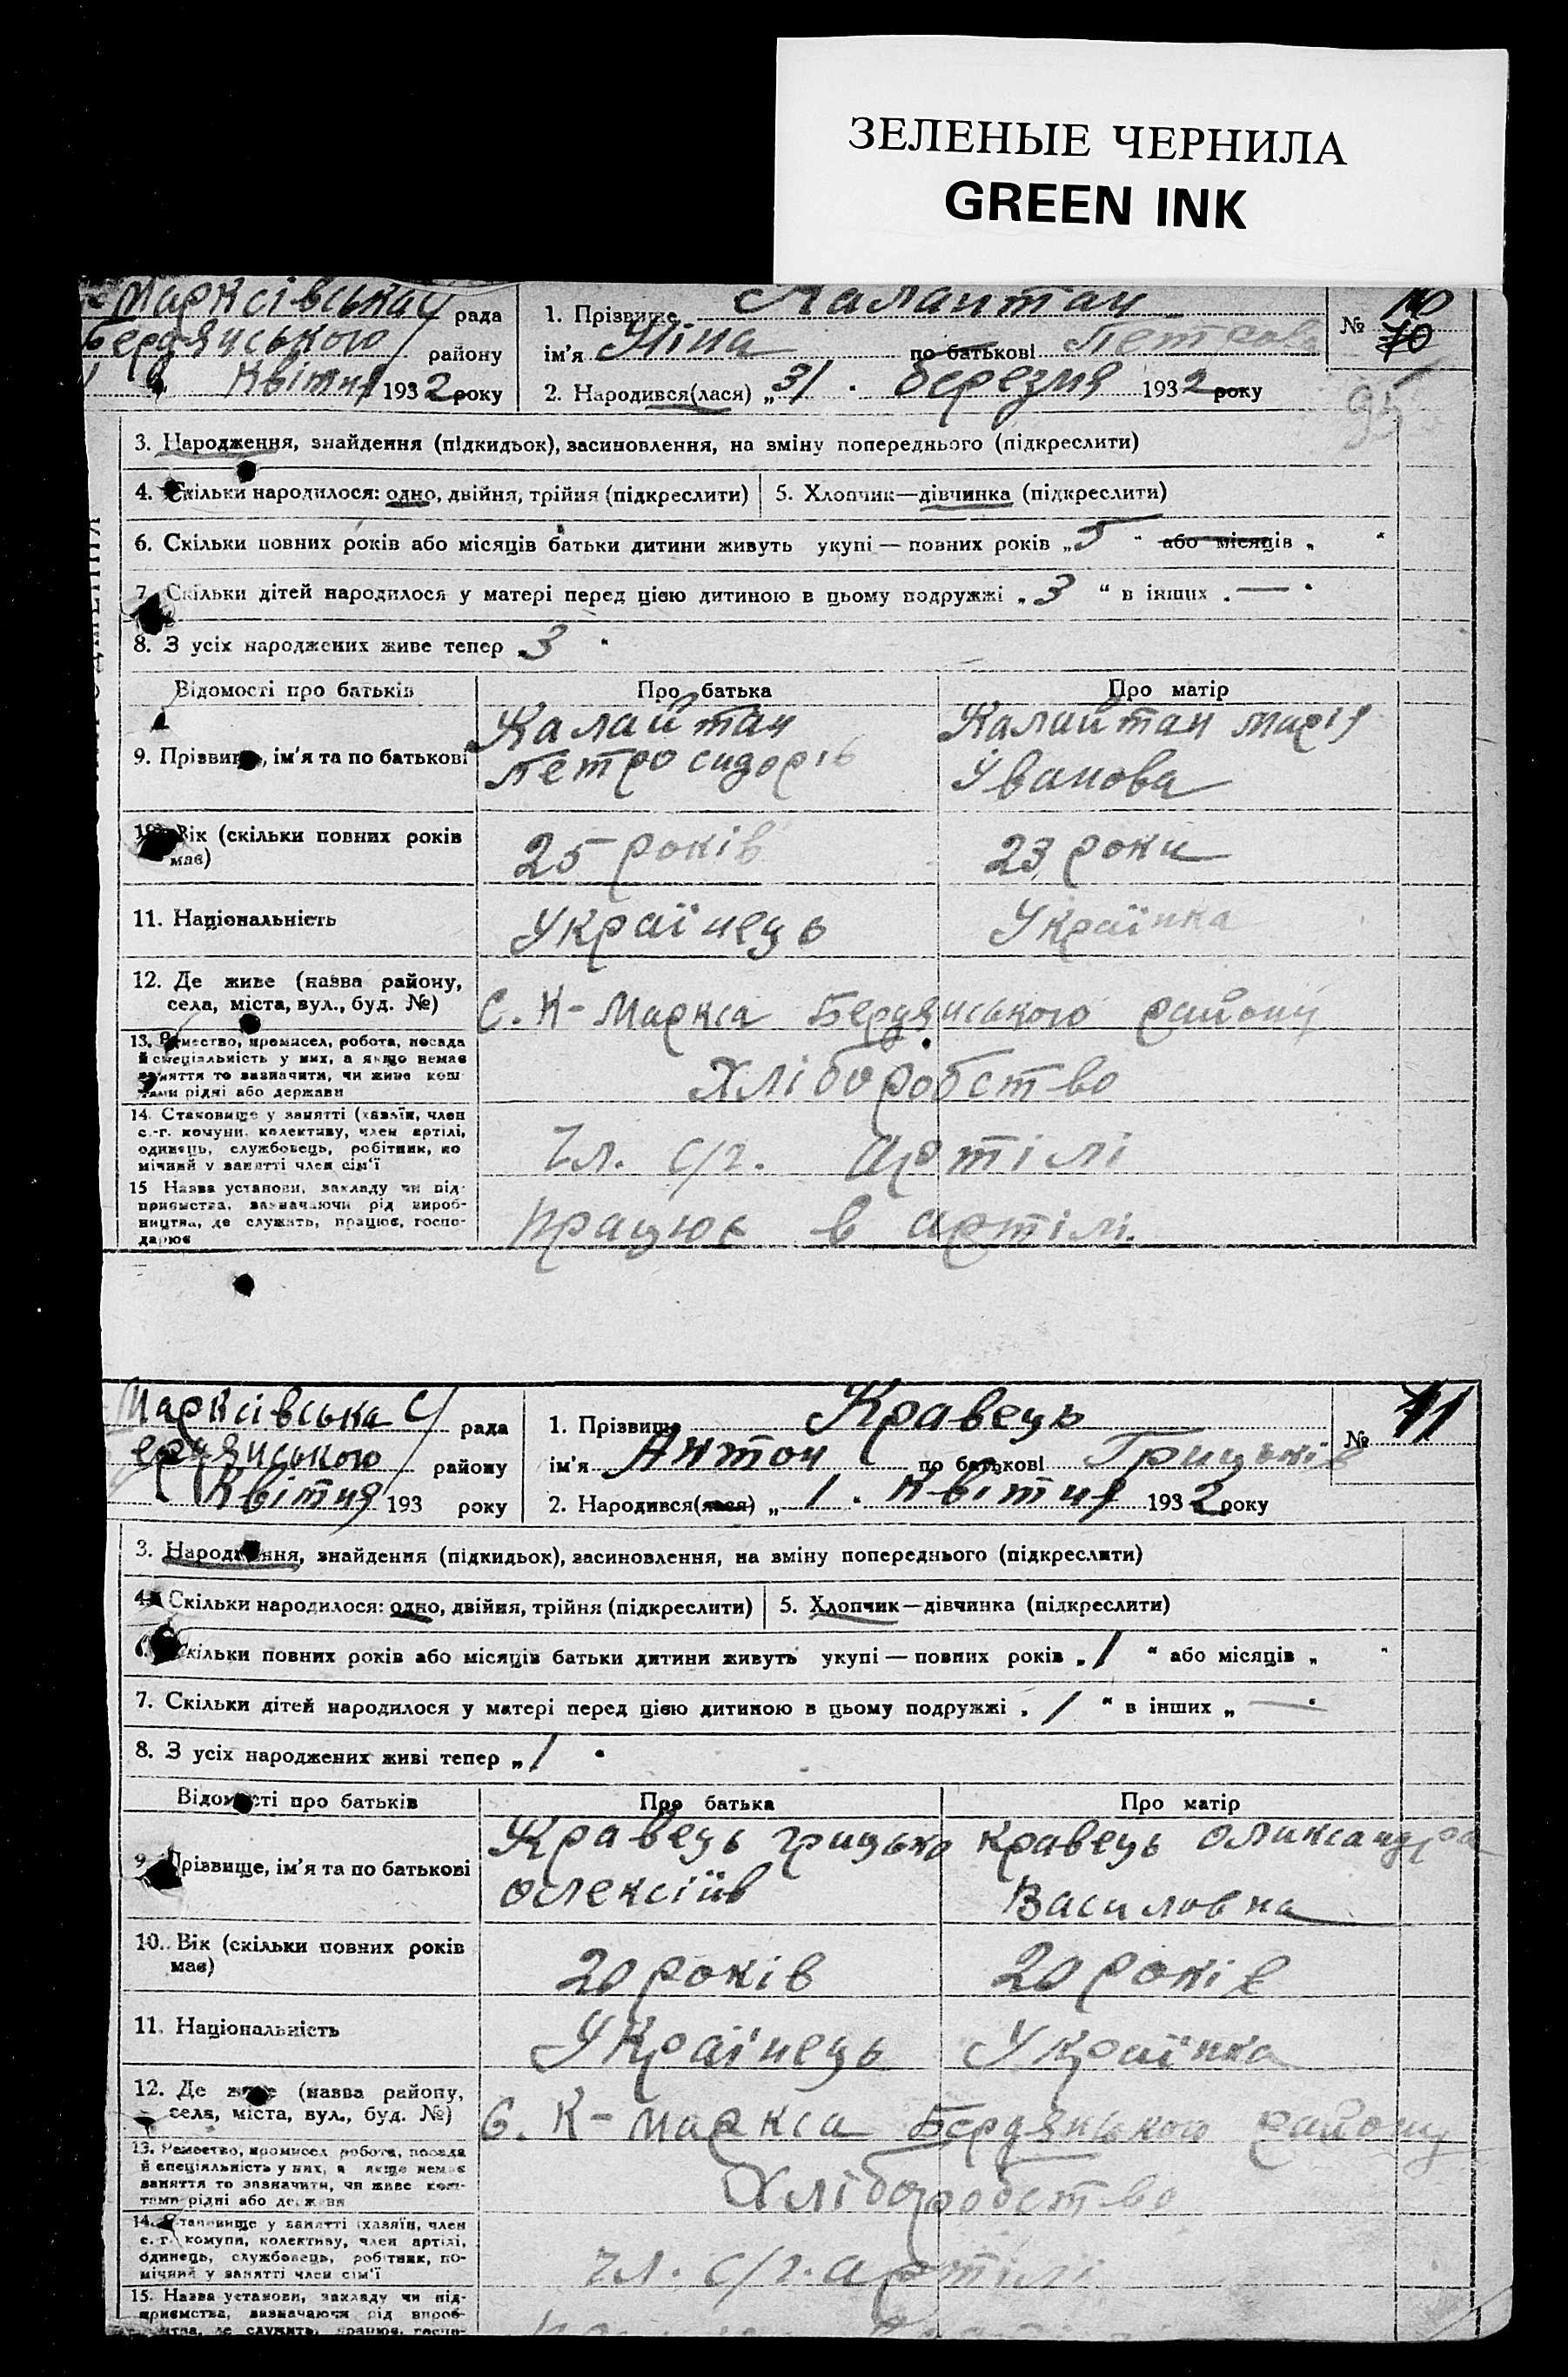 ЗЕЛЕНЫЕ ЧЕРНИЛА
GREEN INK
Марксівська с/ рада
Бердянського району
Квітня 1932 року
1. Прізвище Калайтан
ім'я Ніна по батькові Петрова
2. Народився(лася) „31" березня 1932 року
№ 10
70
95
3. Народження, знайдення (підкидьок), засиновлення, на зміну попереднього (підкреслити)
4. Скільки народилося: одно, двійня, трійня (підкреслити) 5. Хлопчик—дівчинка (підкреслити)
6. Скільки повних років або місяців батьки дитини живуть укупі — повних років „5" або місяців „ "
7. Скільки дітей народилося у матері перед цією дитиною в цьому подружжі „3" в інших „—"
8. З усіх народжених живе тепер „3"
Відомості про батьків Про батька Про матір
9. Прізвище, ім'я та по батькові
Калайтан
Петро Сидорів
Калайтан Марія
Іванова
10. Вік (скільки повних років має)
25 років 23 роки
11. Національність Українець Українка
12. Де живе (назва району,
села, міста, вул., буд. №)
С. К-Маркса Бердянського району
13. Ремество, промисел, робота, посада
й спеціяльність у них, а якщо немає
заняття то зазначити, чи живе кош-
тами рідні або держави
Хліборобство
14. Становище у занятті (хазяїн, член
с.-г. комуни, колективу, член артілі,
одинець, службовець, робітник, по
мічний у занятті член сім'ї
Чл. с/г. артілі
15 Назва установи, закладу чи під-
приємства, зазначаючи рід вироб-
ництва, де служить, працює, госпо-
дарює
Працює в артілі.
Марксівська с/ рада
ердянського району
Квітня 193 року
1. Прізвище Кравець
ім'я Антон по батькові Грицьків
2. Народився(лася) „1" Квітня 1932 року
№ 11
3. Народження, знайдення (підкидьок), засиновлення, на зміну попереднього (підкреслити)
4. Скільки народилося: одно, двійня, трійня (підкреслити) 5. Хлопчик—дівчинка (підкреслити)
6. Скільки повних років або місяців батьки дитини живуть укупі — повних років „1" або місяців „ "
7. Скільки дітей народилося у матері перед цією дитиною в цьому подружжі „1" в інших „—"
8. З усіх народжених живі тепер „1"
Відомості про батьків Про батька Про матір
9. Прізвище, ім'я та по батькові
Кравець Грицько
Олексіїв
Кравець Оликсандра
Василовна
10. Вік (скільки повних років має)
20 років 20 років
11. Національність Українець Українка
12. Де живе (назва району,
села, міста, вул., буд. №)
С. К-Маркса Бердянського району
13. Ремество, промисел робота, посада
й спеціяльність у них, а якщо немає
заняття то зазначити, чи живе кош-
тами рідні або держави
Хліборобство
14. Становище у занятті (хазяїн, член
с.-г. комуни, колективу, член артілі,
одинець, службовець, робітник, по-
мічний у занятті член сім'ї
Чл. с/г. артілі
15. Назва установи, закладу чи під-
приємства, зазначаючи рід вироб-
ництва, де служить, працює, госпо-